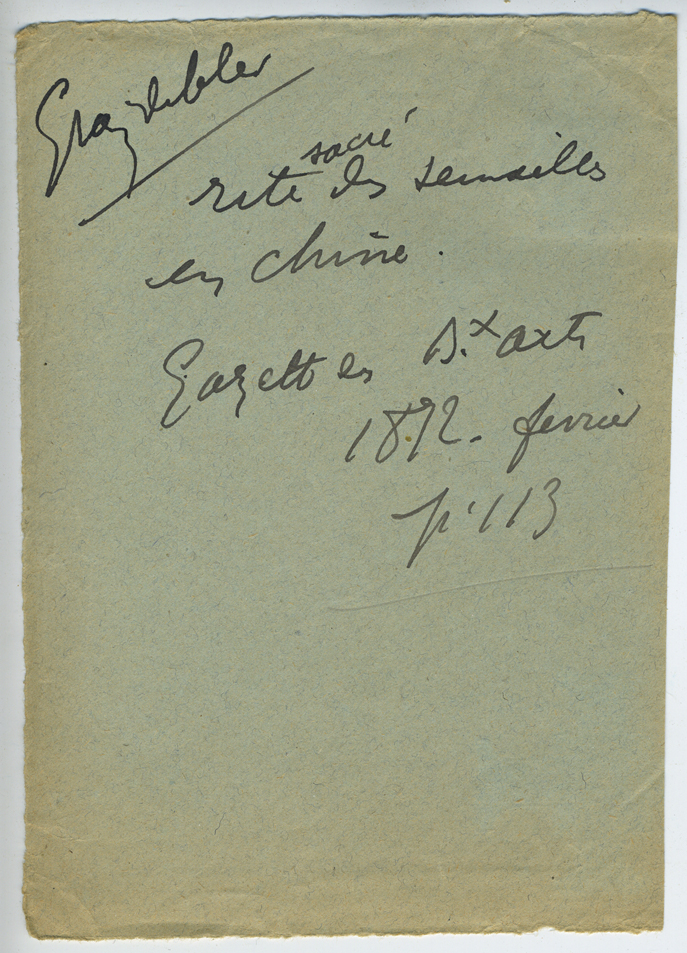 sacré
rite des semailles
en Chine.
Gazette des B.x arts
1872. fevrier
p. 113